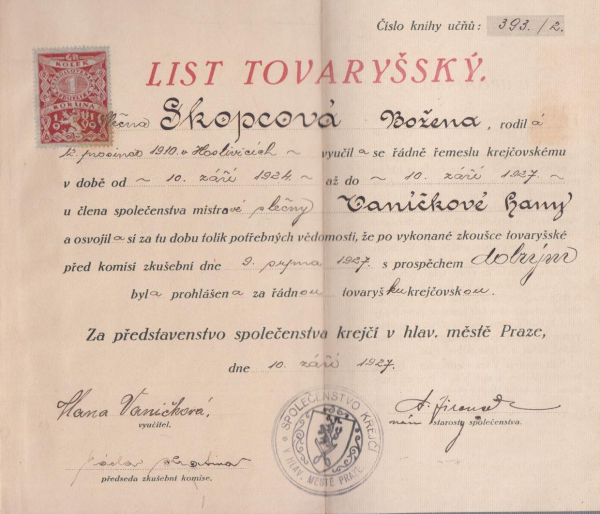 Číslo knihy učňů: 393./2.
KOLEK
1
KORUNA
LIST TOVARYŠSKÝ.
Slečna Skopcová Božena, rodilá
12. prosince 1910 v Hostivicích ~ vyučila se řádně řemeslu krejčovskému
v době od ~ 10. září 1924. ~ až do ~ 10. září 1927. ~
u člena společenstva mistrové slečny Vaníčkové Hany
a osvojila si za tu dobu tolik potřebných vědomostí, že po vykonané zkoušce tovaryšské
před komisí zkušební dne 9. srpna 1927. s prospěchem dobrým
byla prohlášena za řádnou tovaryškukrejčovskou.
Za představenstvo společenstva krejčí v hlav. městě Praze,
dne 10. září 1927.
Hana Vaníčková,
vyučitel.
starosty společenstva.
předseda zkušební komise.
SPOLEČENSTVO KREJČÍ
V HLAV. MĚSTĚ PRAZE